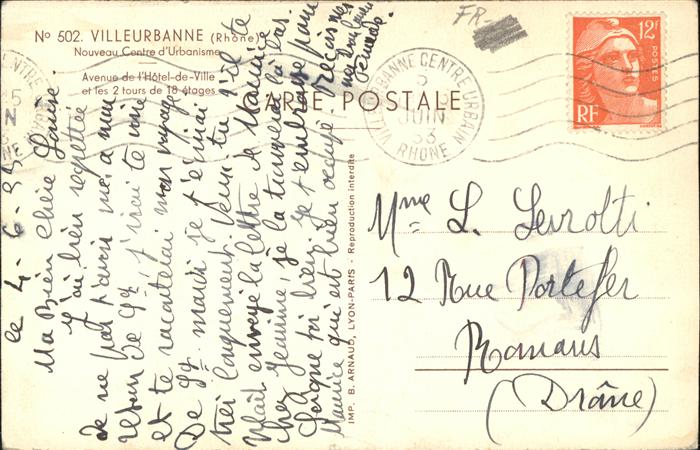 N° 502. VILLEURBANNE (Rhône)
Nouveau Centre d'Urbanisme
Avenue de l'Hôtel-de-Ville
et les 2 tours de 18 étages
CARTE POSTALE
FR
12F
POSTES
RF
VILLEURBANNE CENTRE URBAIN
5
JUIN
53
RHÔNE
IMP. B. ARNAUD, LYON-PARIS - Reproduction interdite
le 4-6-53
Ma Bien chère Louise.
J'ai bien regretté
de ne pas t'avoir vue à mon
retour de Gd, j'irai te voir
et te raconterai mon voyage
De Gd maison je t'écrirai
très longuement. Veux tu s'il te
plaît envoyé la lettre de Maurice
chez Germaine, je la trouverai là bas.
Soigne toi bien, je t'embrasse pour
Maurice qui est bien occupé. Reçois mes
Mme L. Levrolti
12 Rue Portefer
Romans
(Drôme)